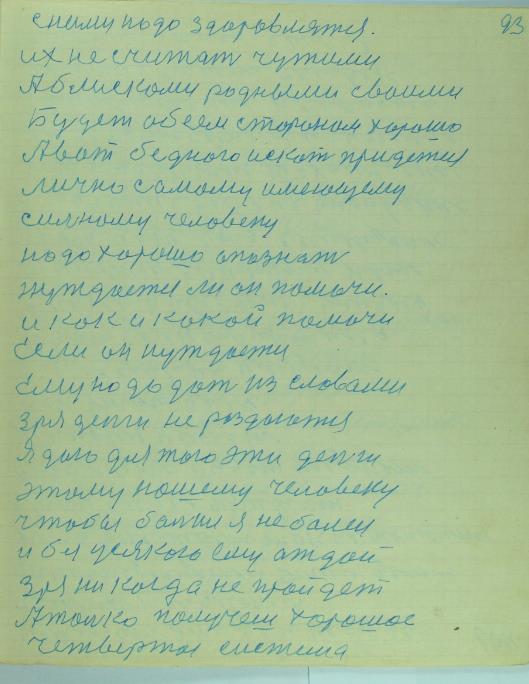 93
сними надо здоровлятся.
их не считат чужими
Аблискоми родными своими
Будет обеем сторонам хорошо
А вот бедного искат придется
лично самому имеющему
силному человеку
надо хорошо опознат
нуждается ли он помочи.
и как и какой помочи
Если он нуждается
Ему надо дат из словами
зря денги не раздаются
Я даю для того эти денги
этому нашему человеку
чтобы болши я не болел
и бл усякого ему аждай
Зря никогда не пройдет
А толко получеш хорошое
четвертая система